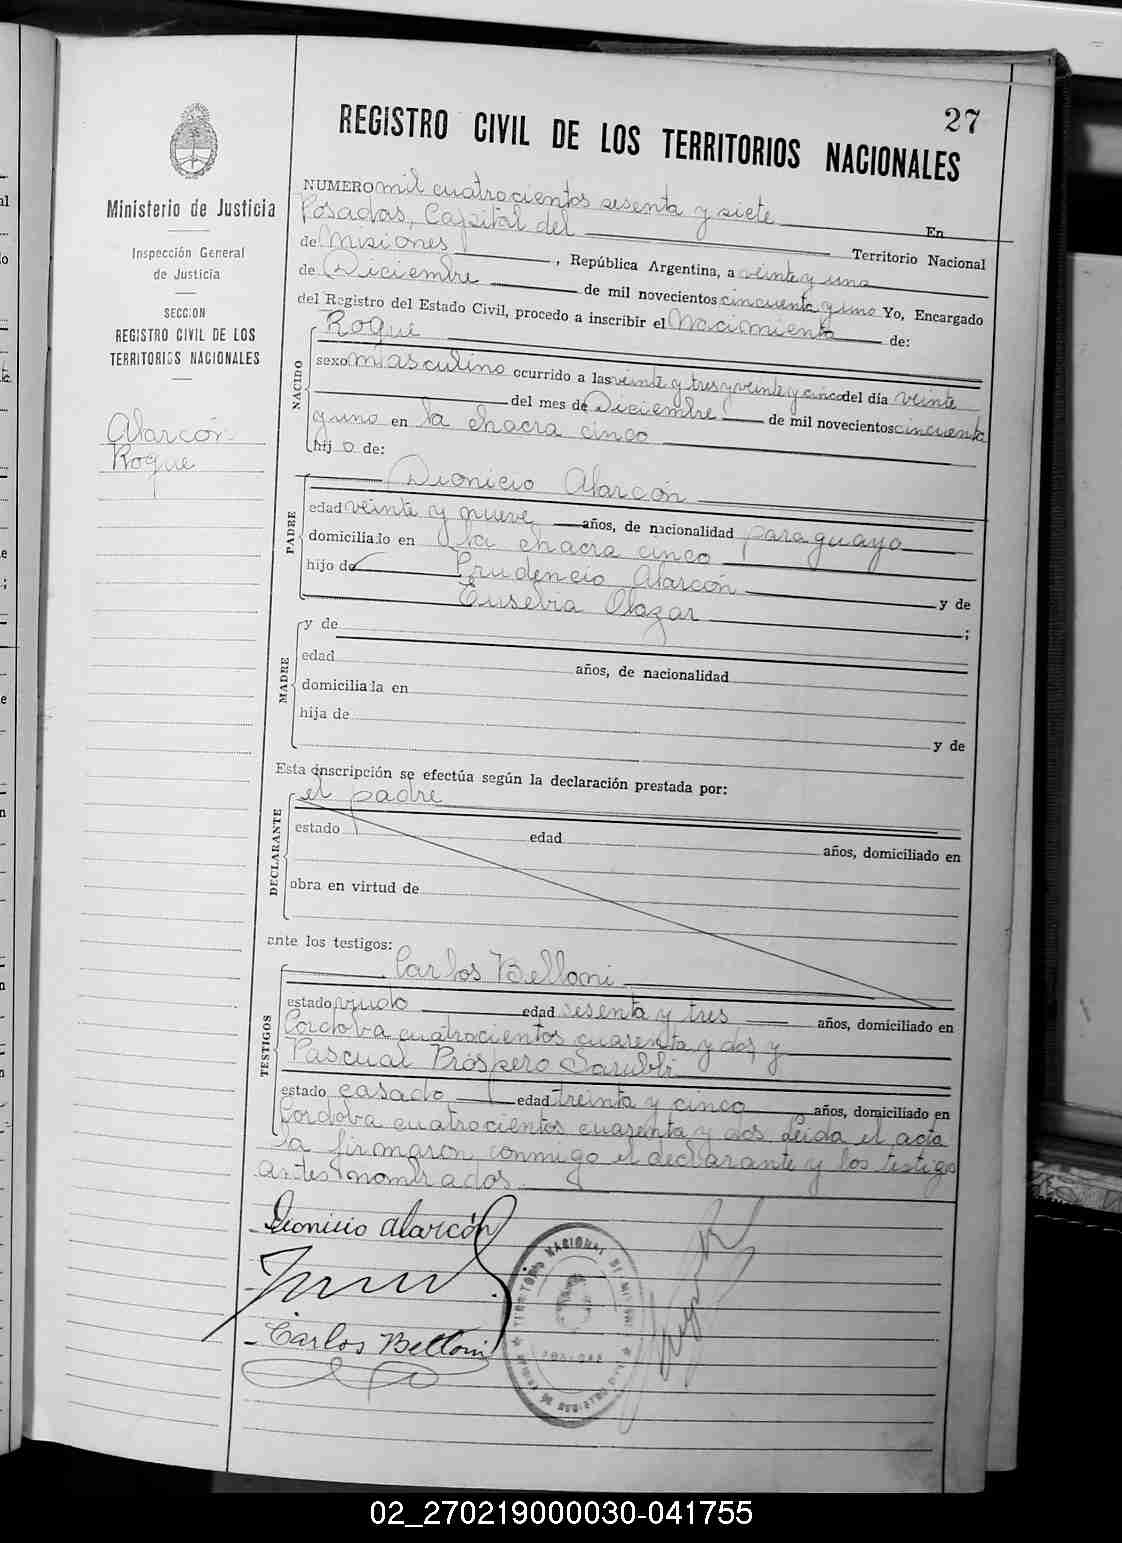 27
REGISTRO CIVIL DE LOS TERRITORIOS NACIONALES
Ministerio de Justicia
Inspección General
de Justicia
SECCION
REGISTRO CIVIL DE LOS
TERRITORIOS NACIONALES
Alarcón
Roque
NUMERO mil cuatrocientos sesenta y siete En
Posadas, Capital del Territorio Nacional
de Misiones, República Argentina, a veinte y uno
de Diciembre de mil novecientos cincuenta y uno Yo, Encargado
del Registro del Estado Civil, procedo a inscribir el Nacimiento de:
NACIDO
Roque
sexo masculino ocurrido a las veinte y tres y veinte y cinco del día veinte
del mes de Diciembre de mil novecientos cincuenta
y uno en la chacra cinco
hij o de:
PADRE
Dionicio Alarcón
edad veinte y nueve años, de nacionalidad paraguayo
domiciliado en la chacra cinco
hijo de Prudencio Alarcón y de
Eusevia Olazar ;
MADRE
y de
edad años, de nacionalidad
domiciliada en
hija de
y de
Esta inscripción se efectúa según la declaración prestada por:
DECLARANTE
el padre
estado edad años, domiciliado en
obra en virtud de
ante los testigos:
TESTIGOS
Carlos Belloni
estado viudo edad sesenta y tres años, domiciliado en
Cordova cuatrocientos cuarenta y dos y
Pascual Próspero Sarubbi
estado casado edad treinta y cinco años, domiciliado en
Cordova cuatrocientos cuarenta y dos Leida el acta
la firmaron conmigo el declarante y los testigo
antes nombrados.
Dionicio Alarcón
Carlos Belloni
TERRITORIO NACIONAL DE MISIONES
POSADAS
02_270219000030-041755